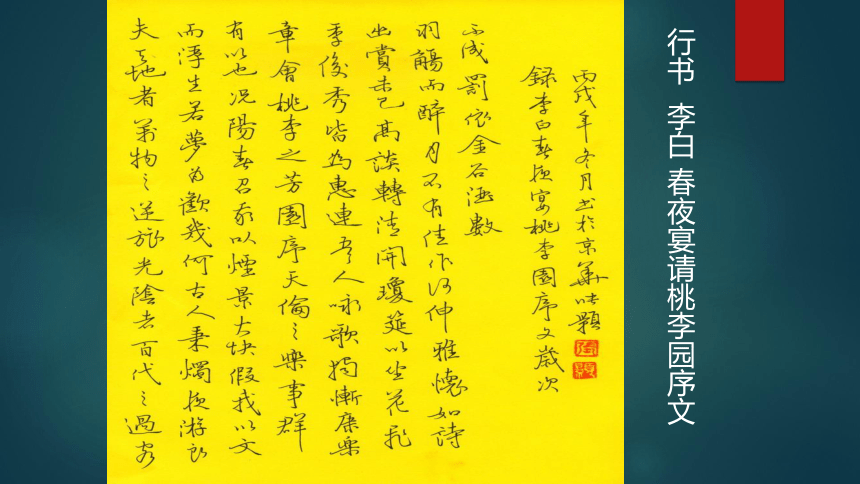 行书 李白 春夜宴请桃李园序文
夫天地者萬物之逆旅光陰者百代之過客
而浮生若夢為歡幾何古人秉燭夜游良
有以也况陽春召我以煙景大塊假我以文
章會桃李之芳園序天倫之樂事群
季俊秀皆為惠連吾人咏歌獨慚康樂
幽賞未已高談轉清開瓊筵以坐花飛
羽觴而醉月不有佳作何伸雅懷如詩
不成罰依金谷酒數
録李白春夜宴桃李園序文歲次
丙戌年冬月书於京華